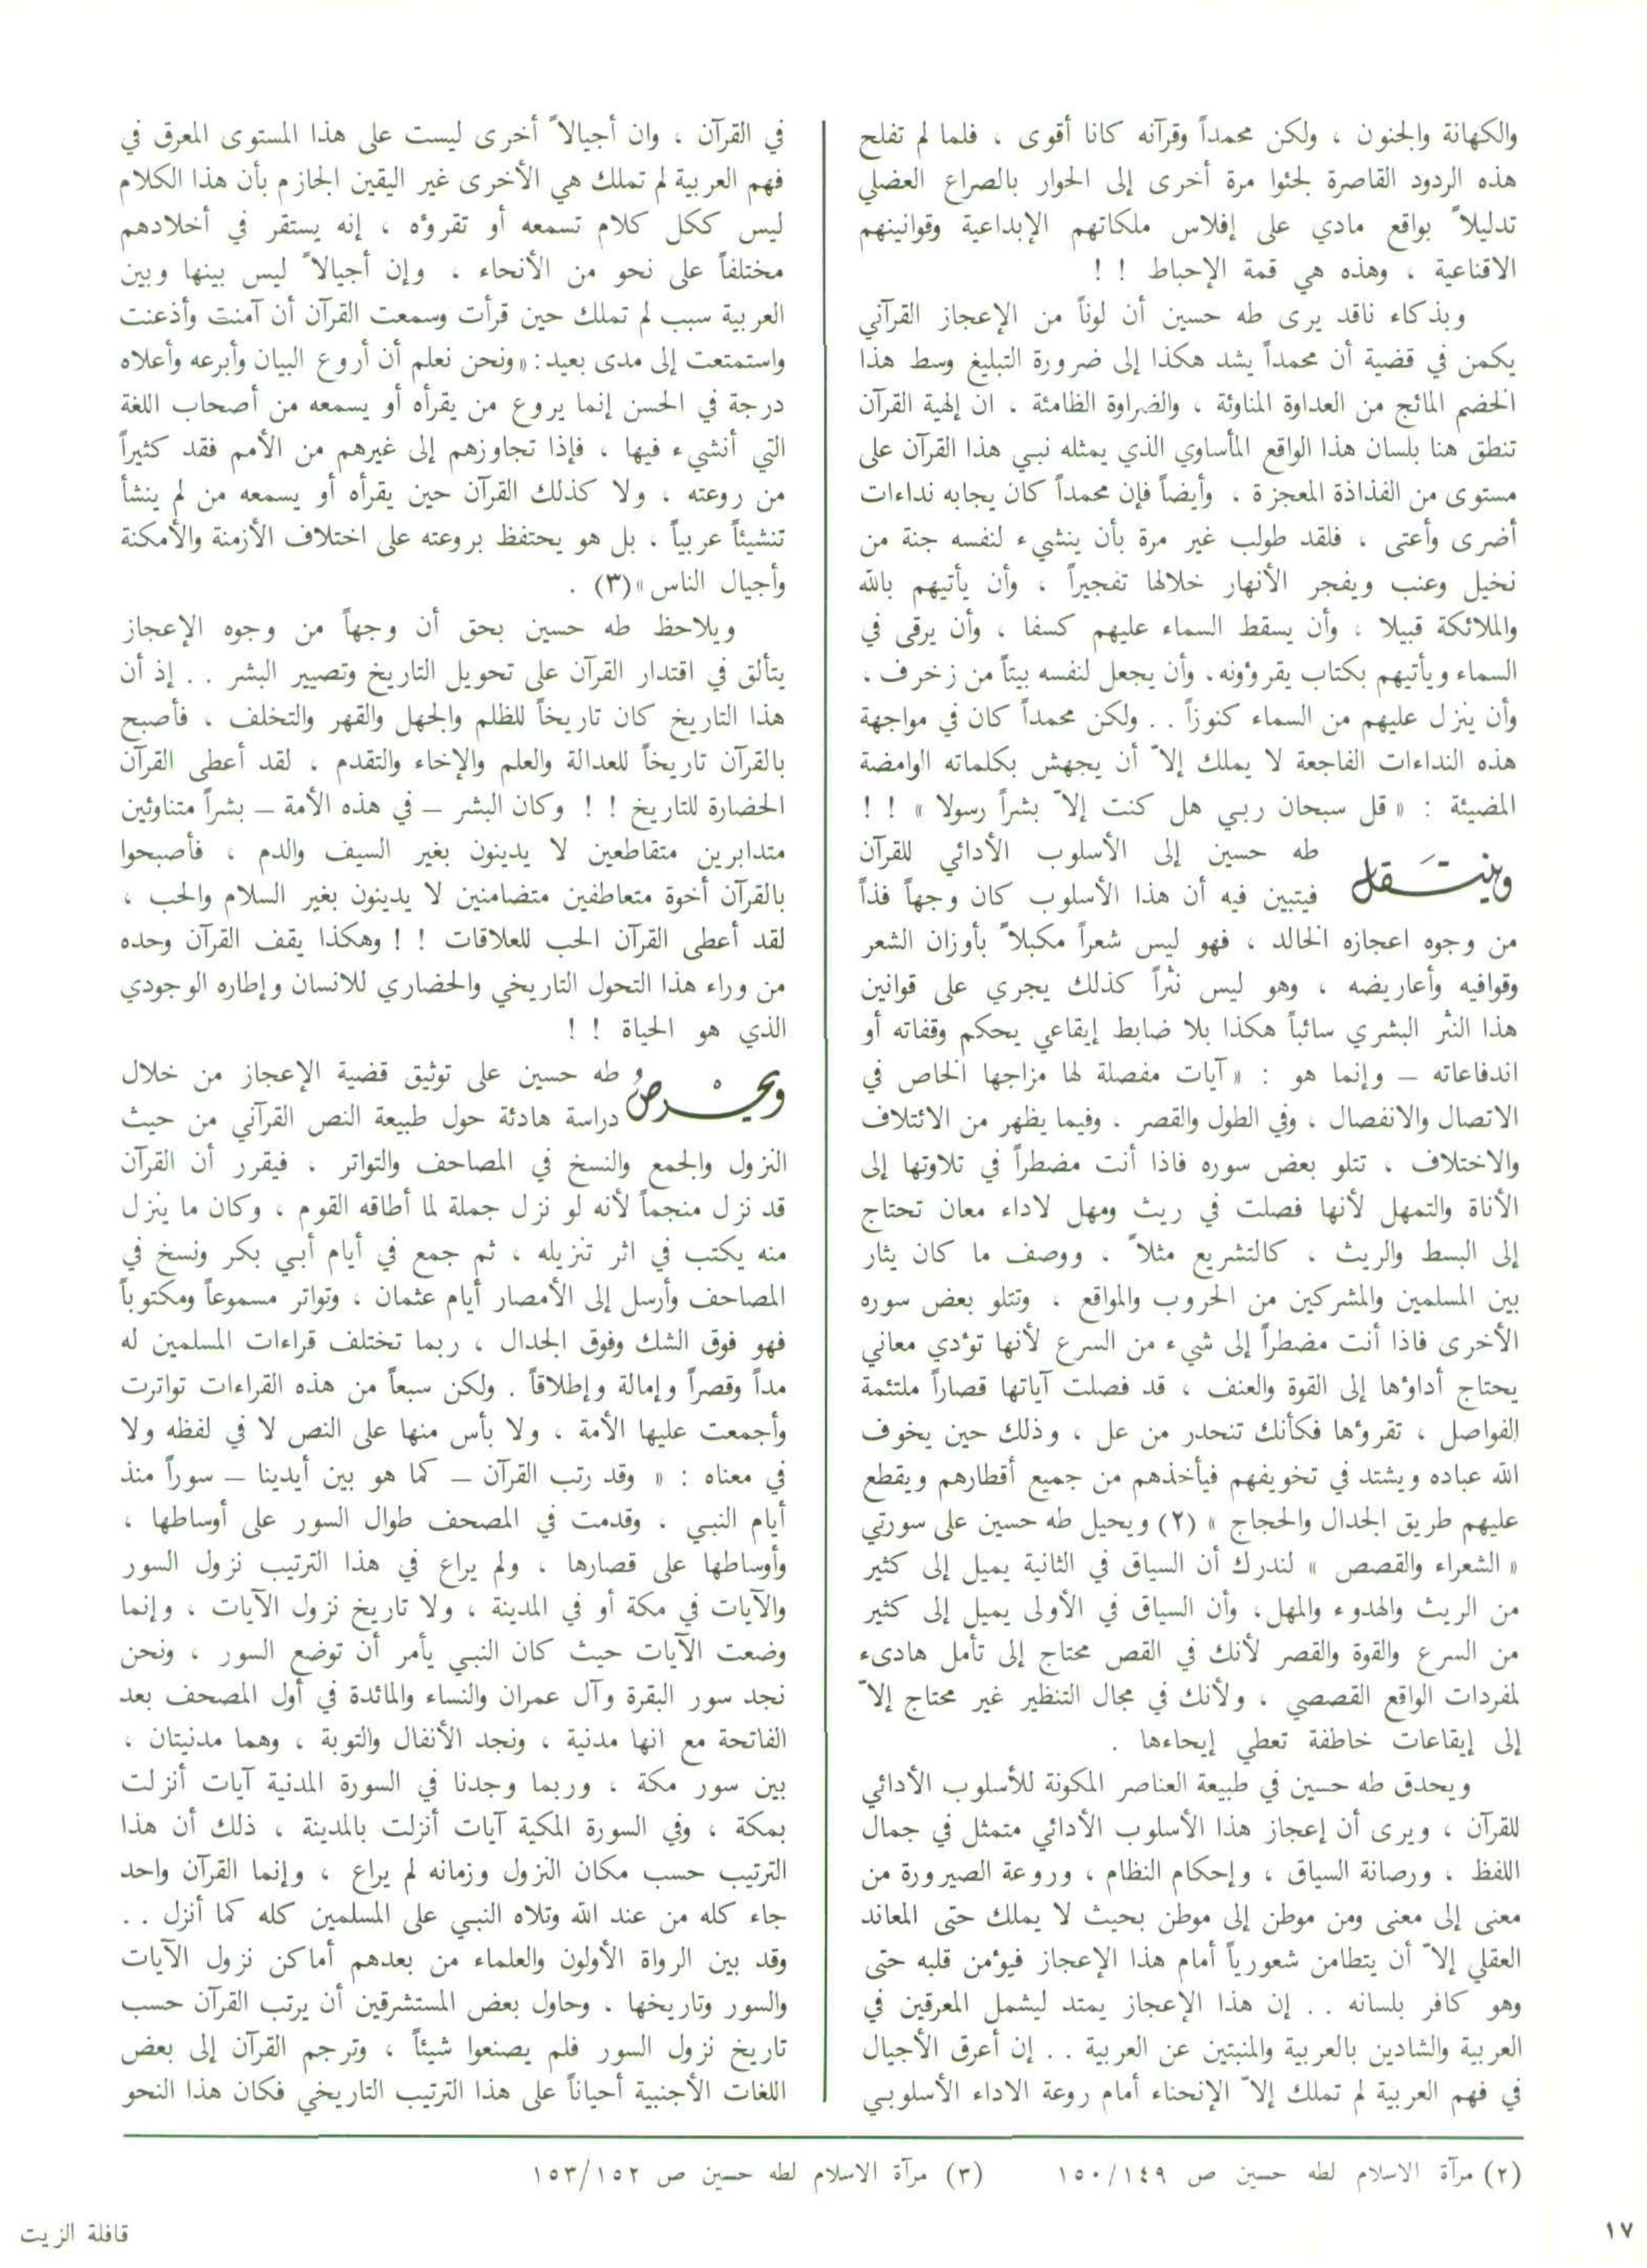 والكهانة والجنون ، ولكن محمداً وقرآنه كانا أقوى ، فلما لم تفلح
هذه الردود القاصرة لجئوا مرة أخرى إلى الحوار بالصراع العضلي
تدليلاً بواقع مادي على إفلاس ملكاتهم الإبداعية وقوانينهم
الاقناعية ، وهذه هي قمة الإحباط ! !
وبذكاء ناقد يرى طه حسين أن لوناً من الإعجاز القرآني
يكمن في قضية أن محمداً يشد هكذا إلى ضرورة التبليغ وسط هذا
الخضم المائج من العداوة المناوئة ، والضراوة الظامئة ، ان إلهية القرآن
تنطق هنا بلسان هذا الواقع المأساوي الذي يمثله نبي هذا القرآن على
مستوى من الفذاذة المعجزة ، وأيضاً فإن محمداً كان يجابه نداءات
أضرى وأعتى ، فلقد طولب غير مرة بأن ينشيء لنفسه جنة من
نخيل وعنب ويفجر الأنهار خلالها تفجيراً ، وأن يأتيهم بالله
والملائكة قبيلا ، وأن يسقط السماء عليهم كسفا ، وأن يرقى في
السماء ويأتيهم بكتاب يقرؤونه، وأن يجعل لنفسه بيتاً من زخرف ،
وأن ينزل عليهم من السماء كنوزاً . . ولكن محمداً كان في مواجهة
هذه النداءات الفاجعة لا يملك إلاّ أن يجهش بكلماته الوامضة
المضيئة : « قل سبحان ربي هل كنت إلاّ بشراً رسولا » ! !
وينتقل طه حسين إلى الأسلوب الأدائي للقرآن
فيتبين فيه أن هذا الأسلوب كان وجهاً فذاً
من وجوه اعجازه الخالد ، فهو ليس شعراً مكبلاً بأوزان الشعر
وقوافيه وأعاريضه ، وهو ليس نثراً كذلك يجري على قوانين
هذا النثر البشري سائباً هكذا بلا ضابط إيقاعي يحكم وقفاته أو
اندفاعاته – وإنما هو : « آيات مفصلة لها مزاجها الخاص في
الاتصال والانفصال ، وفي الطول والقصر ، وفيما يظهر من الائتلاف
والاختلاف ، تتلو بعض سوره فاذا أنت مضطراً في تلاوتها إلى
الأناة والتمهل لأنها فصلت في ريث ومهل لاداء معان تحتاج
إلى البسط والريث ، كالتشريع مثلاً ، ووصف ما كان يثار
بين المسلمين والمشركين من الحروب والمواقع ، وتتلو بعض سوره
الأخرى فاذا أنت مضطراً إلى شيء من السرع لأنها تؤدي معاني
يحتاج أداؤها إلى القوة والعنف ، قد فصلت آياتها قصاراً ملتئمة
الفواصل ، تقرؤها فكأنك تنحدر من عل ، وذلك حين يخوف
الله عباده ويشتد في تخويفهم فيأخذهم من جميع أقطارهم ويقطع
عليهم طريق الجدال والحجاج » (٢) ويحيل طه حسين على سورتي
« الشعراء والقصص » لندرك أن السياق في الثانية يميل إلى كثير
من الريث والهدوء والمهل، وأن السياق في الأولى يميل إلى كثير
من السرع والقوة والقصر لأنك في القص محتاج إلى تأمل هادىء
لمفردات الواقع القصصي ، ولأنك في مجال التنظير غير محتاج إلاّ
إلى إيقاعات خاطفة تعطي إيحاءها .
ويحدق طه حسين في طبيعة العناصر المكونة للأسلوب الأدائي
للقرآن ، ويرى أن إعجاز هذا الأسلوب الأدائي متمثل في جمال
اللفظ ، ورصانة السياق ، وإحكام النظام ، وروعة الصيرورة من
معنى إلى معنى ومن موطن إلى موطن بحيث لا يملك حتى المعاند
العقلي إلاّ أن يتطامن شعورياً أمام هذا الإعجاز فيؤمن قلبه حتى
وهو كافر بلسانه . . إن هذا الإعجاز يمتد ليشمل المعرقين في
العربية والشادين بالعربية والمنبتين عن العربية . . إن أعرق الأجيال
في فهم العربية لم تملك إلاّ الإنحناء أمام روعة الاداء الأسلوبي
في القرآن ، وان أجيالاً أخرى ليست على هذا المستوى المعرق في
فهم العربية لم تملك هي الأخرى غير اليقين الجازم بأن هذا الكلام
ليس ككل كلام تسمعه أو تقرؤه ، إنه يستقر في أخلادهم
مختلفاً على نحو من الأنحاء ، وإن أجيالاً ليس بينها وبين
العربية سبب لم تملك حين قرأت وسمعت القرآن أن آمنت وأذعنت
واستمتعت إلى مدى بعيد: « ونحن نعلم أن أروع البيان وأبرعه وأعلاه
درجة في الحسن إنما يروع من يقرأه أو يسمعه من أصحاب اللغة
التي أنشيء فيها ، فإذا تجاوزهم إلى غيرهم من الأمم فقد كثيراً
من روعته ، ولا كذلك القرآن حين يقرأه أو يسمعه من لم ينشأ
تنشيئاً عربياً ، بل هو يحتفظ بروعته على اختلاف الأزمنة والأمكنة
وأجيال الناس »(٣) .
ويلاحظ طه حسين بحق أن وجهاً من وجوه الإعجاز
يتألق في اقتدار القرآن على تحويل التاريخ وتصيير البشر . . إذ أن
هذا التاريخ كان تاريخاً للظلم والجهل والقهر والتخلف ، فأصبح
بالقرآن تاريخاً للعدالة والعلم والإخاء والتقدم ، لقد أعطى القرآن
الحضارة للتاريخ ! ! وكان البشر – في هذه الأمة – بشراً متناوئين
متدابرين متقاطعين لا يدينون بغير السيف والدم ، فأصبحوا
بالقرآن أخوة متعاطفين متضامنين لا يدينون بغير السلام والحب ،
لقد أعطى القرآن الحب للعلاقات ! ! وهكذا يقف القرآن وحده
من وراء هذا التحول التاريخي والحضاري للانسان وإطاره الوجودي
الذي هو الحياة ! !
ويحرص طه حسين على توثيق قضية الإعجاز من خلال
دراسة هادئة حول طبيعة النص القرآني من حيث
النزول والجمع والنسخ في المصاحف والتواتر ، فيقرر أن القرآن
قد نزل منجماً لأنه لو نزل جملة لما أطاقه القوم ، وكان ما ينزل
منه يكتب في اثر تنزيله ، ثم جمع في أيام أبي بكر ونسخ في
المصاحف وأرسل إلى الأمصار أيام عثمان ، وتواتر مسموعاً ومكتوباً
فهو فوق الشك وفوق الجدال ، ربما تختلف قراءات المسلمين له
مداً وقصراً وإمالة وإطلاقاً . ولكن سبعاً من هذه القراءات تواترت
وأجمعت عليها الأمة ، ولا بأس منها على النص لا في لفظه ولا
في معناه : « وقد رتب القرآن – كما هو بين أيدينا – سوراً منذ
أيام النبي ، وقدمت في المصحف طوال السور على أوساطها ،
وأوساطها على قصارها ، ولم يراع في هذا الترتيب نزول السور
والآيات في مكة أو في المدينة ، ولا تاريخ نزول الآيات ، وإنما
وضعت الآيات حيث كان النبي يأمر أن توضع السور ، ونحن
نجد سور البقرة وآل عمران والنساء والمائدة في أول المصحف بعد
الفاتحة مع انها مدنية ، ونجد الأنفال والتوبة ، وهما مدنيتان ،
بين سور مكة ، وربما وجدنا في السورة المدنية آيات أنزلت
بمكة ، وفي السورة المكية آيات أنزلت بالمدينة ، ذلك أن هذا
الترتيب حسب مكان النزول وزمانه لم يراع ، وإنما القرآن واحد
جاء كله من عند الله وتلاه النبي على المسلمين كله كما أنزل . .
وقد بين الرواة الأولون والعلماء من بعدهم أماكن نزول الآيات
والسور وتاريخها ، وحاول بعض المستشرقين أن يرتب القرآن حسب
تاريخ نزول السور فلم يصنعوا شيئاً ، وترجم القرآن إلى بعض
اللغات الأجنبية أحياناً على هذا الترتيب التاريخي فكان هذا النحو
(٢) مرآة الاسلام لطه حسين ص ١٥٠/١٤٩
(٣) مرآة الاسلام لطه حسين ص ١٥٣/١٥٢
١٧
قافلة الزيت